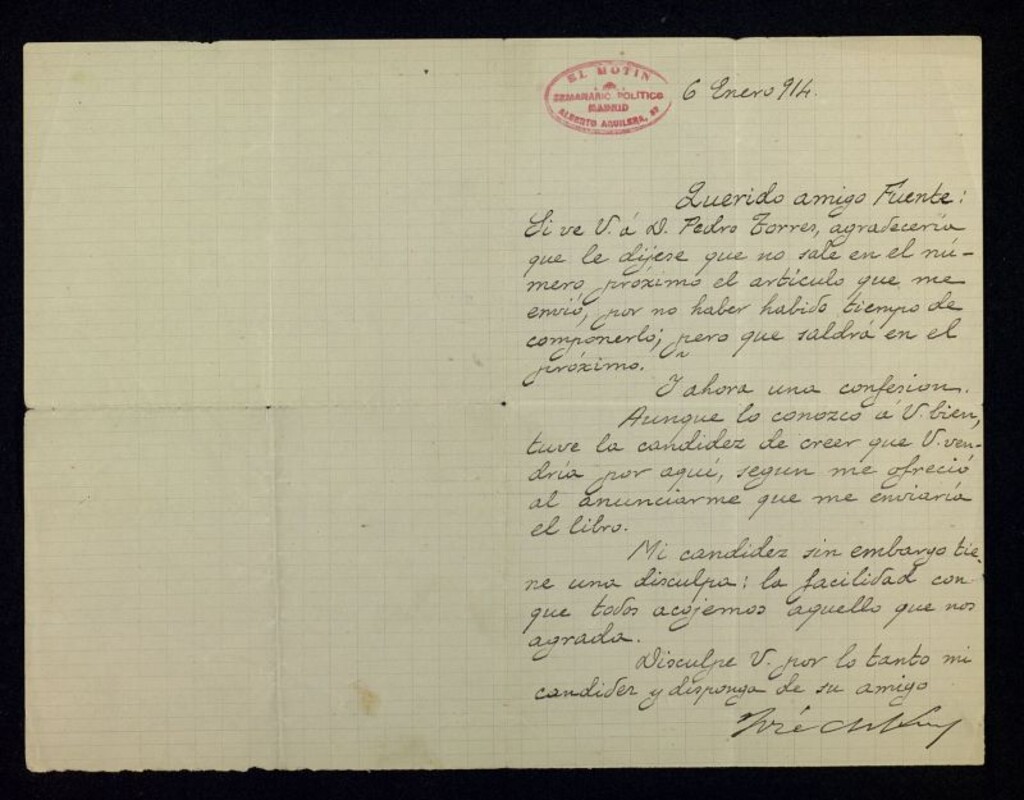 EL MOTIN
SEMANARIO POLÍTICO
MADRID
ALBERTO AGUILERA,
6 Enero 914.
Querido amigo Fuente:
Si ve V. á D. Pedro Torres, agradecería
que le dijese que no sale en el nú-
mero próximo el artículo que me
envió, por no haber habido tiempo de
componerlo; pero que saldrá en el
próximo.
Y ahora una confesion.
Aunque lo conozco á V. bien,
tuve la candidez de creer que V. ven-
dría por aquí, segun me ofreció
al anunciarme que me enviaría
el libro.
Mi candidez sin embargo tie-
ne una disculpa: la facilidad con
que todos acojemos aquello que nos
agrada.
Disculpe V. por lo tanto mi
candidez y disponga de su amigo
José